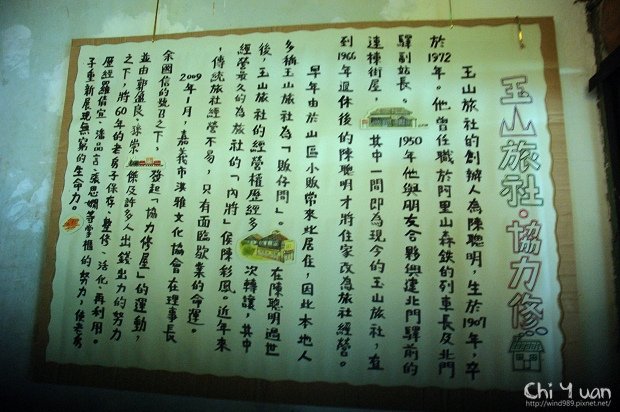 玉山旅社·協力修
玉山旅社的創辦人為陳聰明，生於1907年，卒
於1972年。他曾任職於阿里山森鉄的列車長及北門
驛副站長，1950年他與朋友合夥興建北門驛前的
連棟街屋，其中一間即為現今的玉山旅社，直
到1966年退休後的陳聰明才將住家改為旅社經營。
早年由於山區小販常來此居住，因此本地人
多稱玉山旅社為「販仔間」。在陳聰明過世
後，玉山旅社的經營權歷經多次轉讓，其中
經營最久的為旅社的「內將」侯陳彩鳳。近年來
，傳統旅社經營不易，只有面臨歇業的命運。
2009年1月，嘉義市洪雅文化協會在理事長
余國信的號召之下，發起「協力修屋」的運動，
並由郭盈良、徐崇傑及許多人出錢出力的努力
之下，將60年的老房子保存、整修、活化、再利用。
歷經羅倩宜、潘品言、梁思嫻等掌櫃的努力，使老房
子重新展現無窮的生命力。
Chi Yuan
http://wind989.pixnet.net/